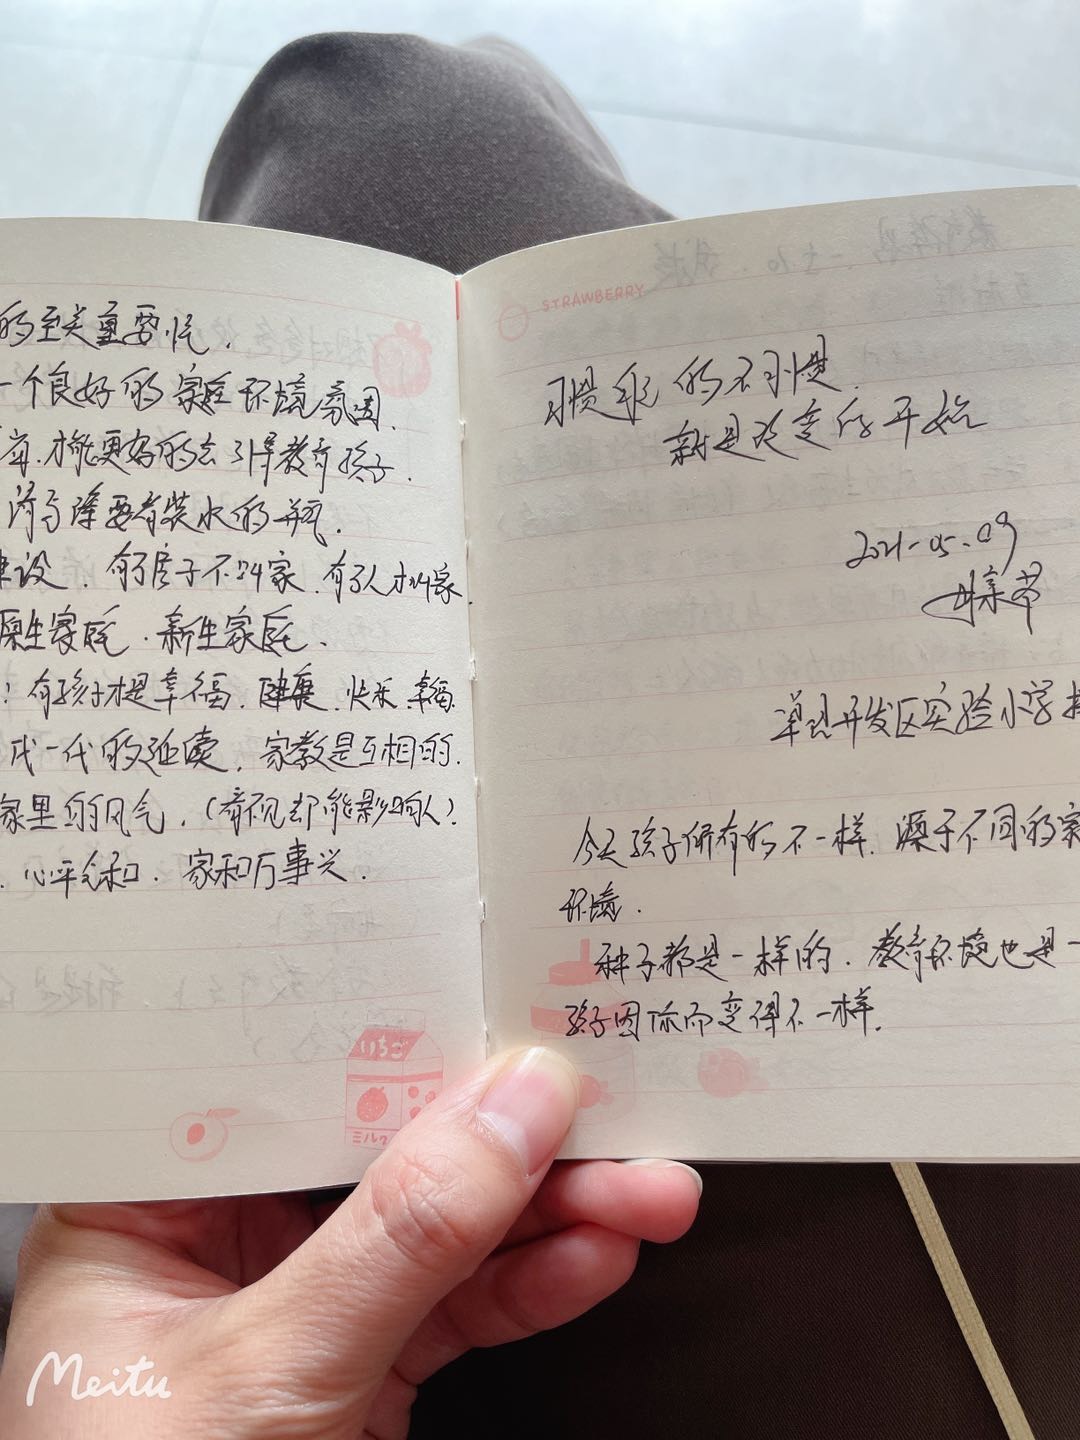 的至关重要性.
一个良好的家庭环境氛围.
才能更好的去引导教育孩子.
降要有装水的瓶.
建设. 有了房子不叫家. 有了人才叫家
原生家庭. 新生家庭.
有孩子才是幸福. 健康. 快乐. 幸福.
一代的延续. 家教是互相的.
家里的风气. (看不见却能影响人).
心平气和. 家和万事兴.
いちご
ミルク
STRAWBERRY
习惯 的不习惯.
就是改变的开始
2021-05.09
单县开发区实验小学
今天孩子所有的不一样. 源于不同的家
环境.
种子都是一样的. 教育环境也是一
孩子因你而变得不一样.
Meitu